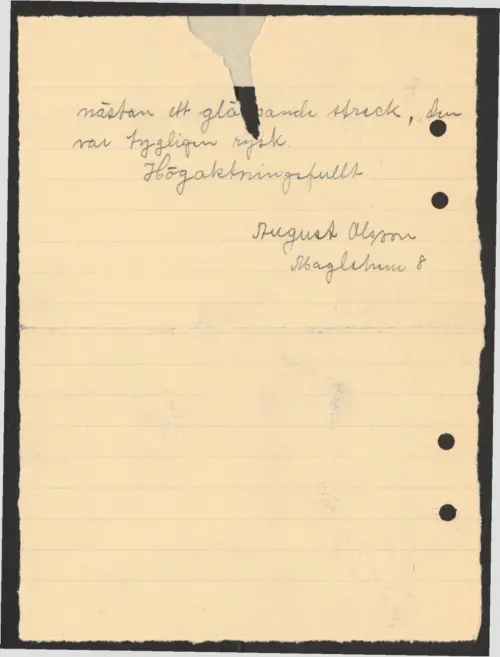 nästan ett glänsande streck, den
var tydligen rysk.
Högaktningsfullt
August Olsson
Maglehem 8